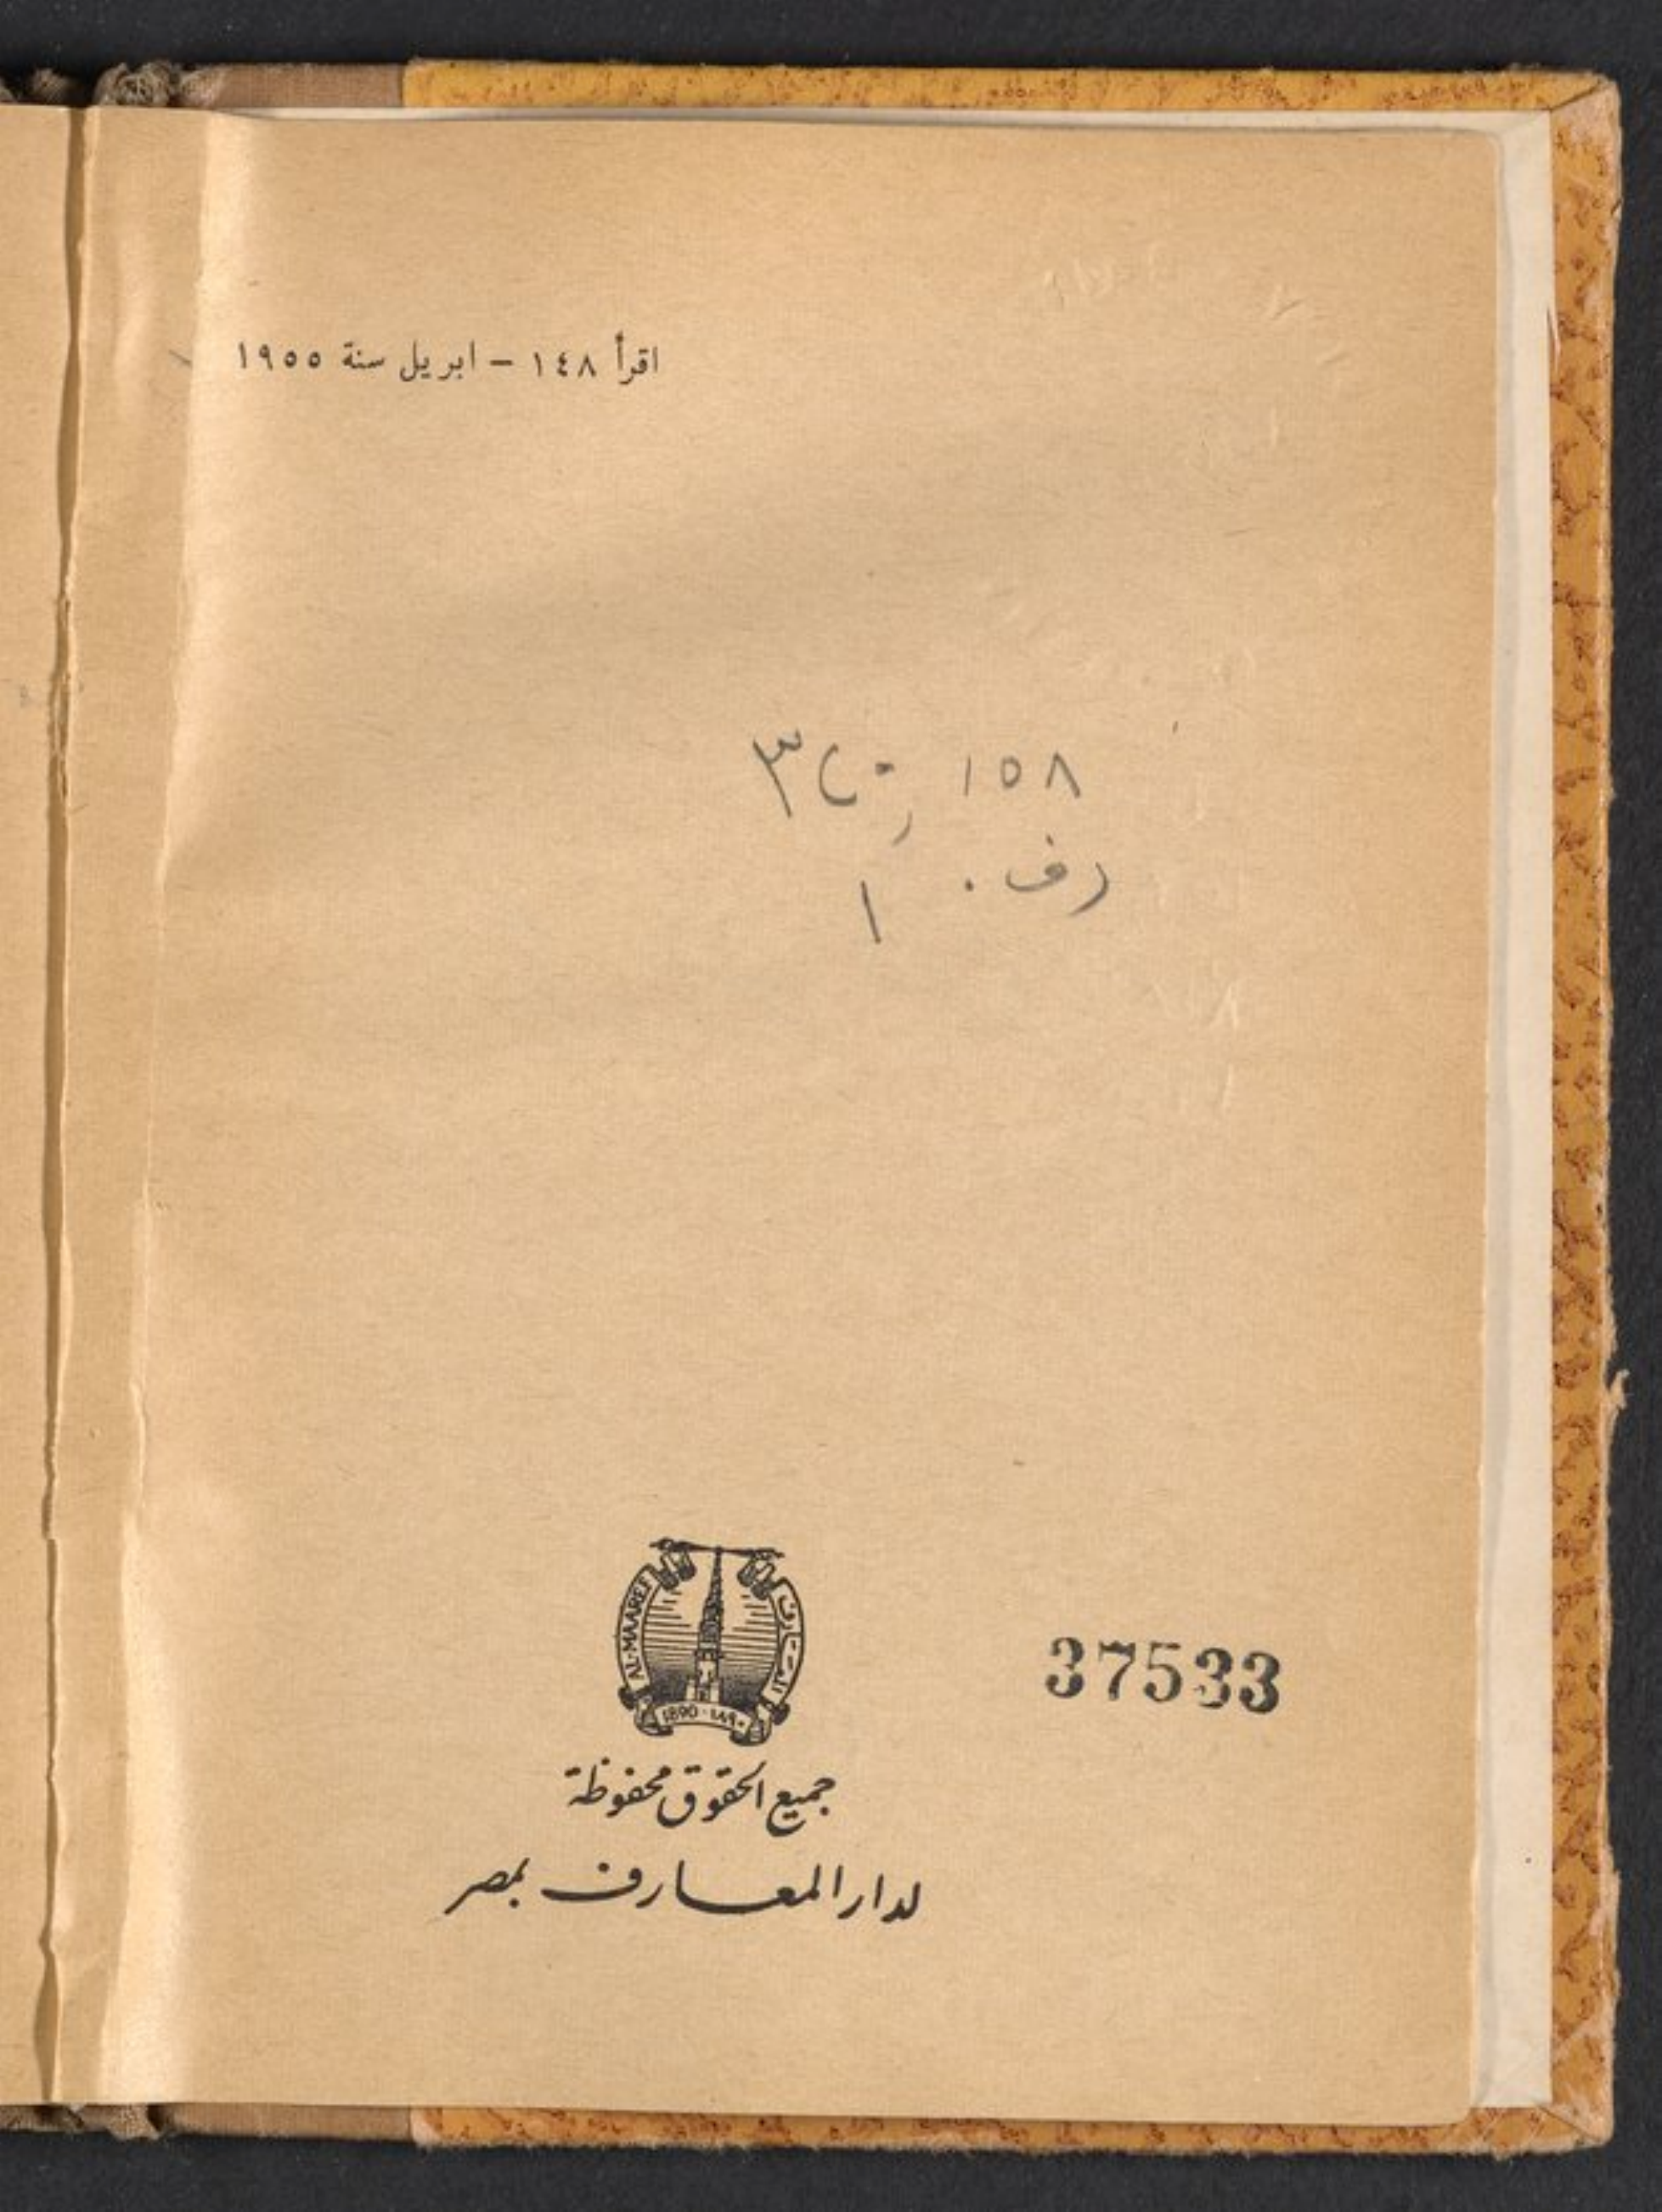 اقرأ ١٤٨ – ابريل سنة ١٩٥٥
١٥٨
رف.
١
AL-MAAREF
المعارف
1890 - ١٨٩٠
37533
جميع الحقوق محفوظة
لدار المعارف بمصر